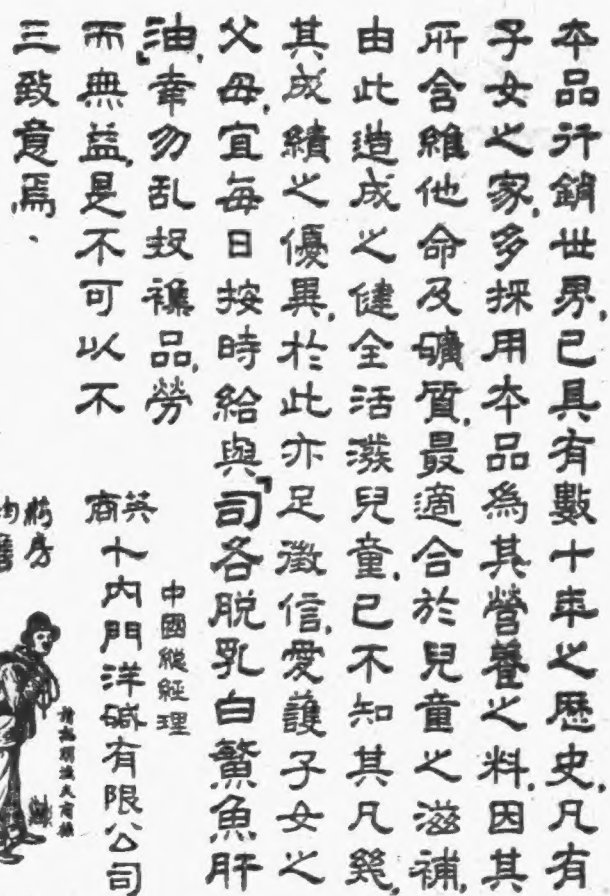 本品行銷世界,已具有數十年之歷史,凡有
子女之家,多採用本品為其營養之料,因其
所含維他命及礦質,最適合於兒童之滋補,
由此造成之健全活潑兒童,已不知其凡幾,
其成績之優異,於此亦足徵信,愛護子女之
父母,宜每日按時給與「司各脫乳白鰵魚肝
油」,幸勿乱投襍品,勞
而無益,是不可以不
三致意焉、
中國總經理
英商卜內門洋碱有限公司
請認明漁夫商標